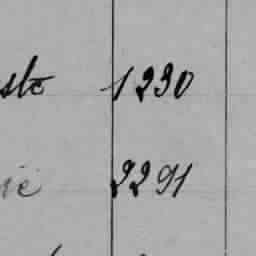 ste 1230
ie 2291